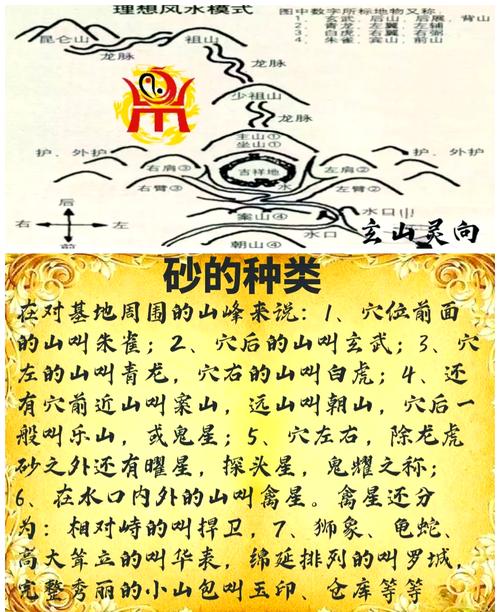 理想风水模式
图中数字所标地物又称:
1、玄武,后山,后屏,背山
2、青龙,左翼,左辅
3、白虎,右翼,右弼
4、朱雀,宾山,前山
昆仑山
祖山
龙脉
少祖山
龙脉
主山①
坐山①
护、外护
护、外护
右肩③
吉祥地
左肩②
右臂③
水
左臂②
后
右
左
前
案山④
水口
水口
朝山④
玄山灵向
砂的种类
在对基地周围的山峰来说:1、穴位前面
的山叫朱雀;2、穴后的山叫玄武;3、穴
左的山叫青龙,穴右的山叫白虎;4、还
有穴前近山叫案山,远山叫朝山,穴后一
般叫乐山,或鬼星;5、穴左右,除龙虎
砂之外还有曜星,探头星,鬼耀之称;
6、在水口内外的山叫禽星。禽星还分
为:相对峙的叫捍卫,7、狮象、龟蛇、
高大耸立的叫华表,绵延排列的叫罗城,
完整秀丽的小山包叫玉印、仓库等等